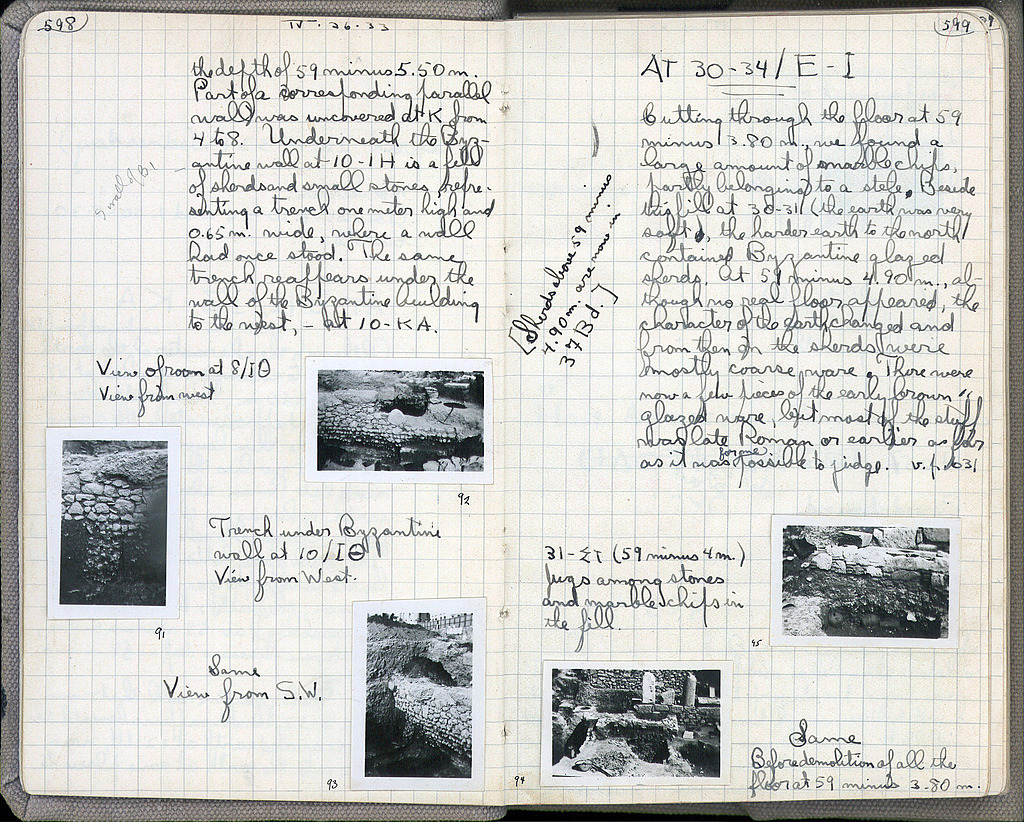 598
IV-26-33
the depth of 59 minus 5.50 m.
Part of a corresponding parallel
wall was uncovered at K from
4 to 8. Underneath the Byz-
antine wall at 10-1H is a fill
of sherds and small stones, repre-
senting a trench one meter high and
0.65 m. wide, where a wall
had once stood. The same
trench reappears under the
wall of the Byzantine building
to the west, - at 10-KA.
View of room at 8/IΘ
View from west
92
91
Trench under Byzantine
wall at 10/IΘ
View from West.
Same
View from S.W.
93
599
AT 30-34/E-I
Cutting through the floor at 59
minus 3.80 m. we found a
large amount of marble chips,
partly belonging to a stele. Beside
this fill at 30-31 (the earth was very
soft), the harder earth to the north
contained Byzantine glazed
sherds. At 59 minus 4.90 m., al-
though no real floor appeared, the
character of the earth changed and
from then on the sherds were
mostly coarse ware. There were
now a few pieces of the early brown
glazed ware, but most of the stuff
was late Roman or earlier as far
as it was possible for me to judge. v. p. 631
[Sherds above 59 minus
4.90 m. are now in
37 Bd.]
31-ΣΤ (59 minus 4 m.)
Jugs among stones
and marble chips in
the fill.
95
94
Same
Before demolition of all the
floor at 59 minus 3.80 m.